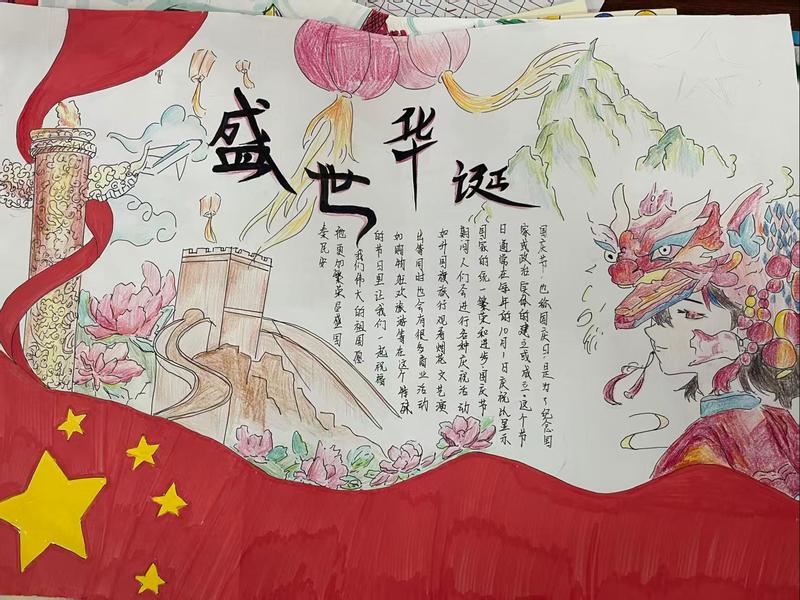 盛世华诞
国庆节!也称国庆日,是为了纪念国
家或政权实体的建立或成立。这个节
日通常在每年的10月1日庆祝以显示
国家的统一繁荣和进步·国庆节
期间人们会进行各种庆祝活动
如升国旗旅行观看烟花文艺演
出等同时也会有很多商业活动
如购物狂欢旅游等在这个特殊
的节日里让我们一起祝福
我们伟大的祖国愿
祖更加繁荣昌盛国
泰民安